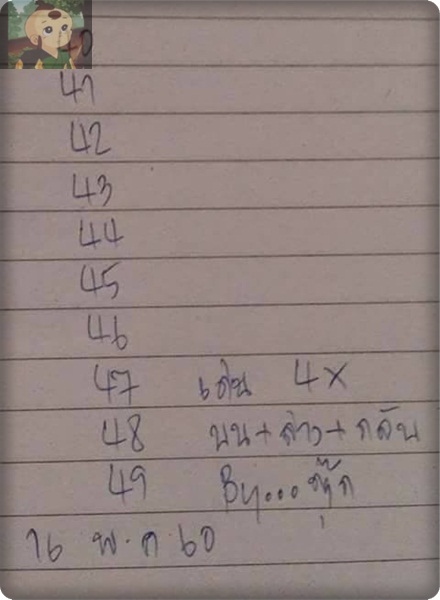 40
41
42
43
44
45
46
47 เด่น 4x
48 บน+ล่าง+กลับ
49 By...ตุ๊ก
16 พ.ค 60